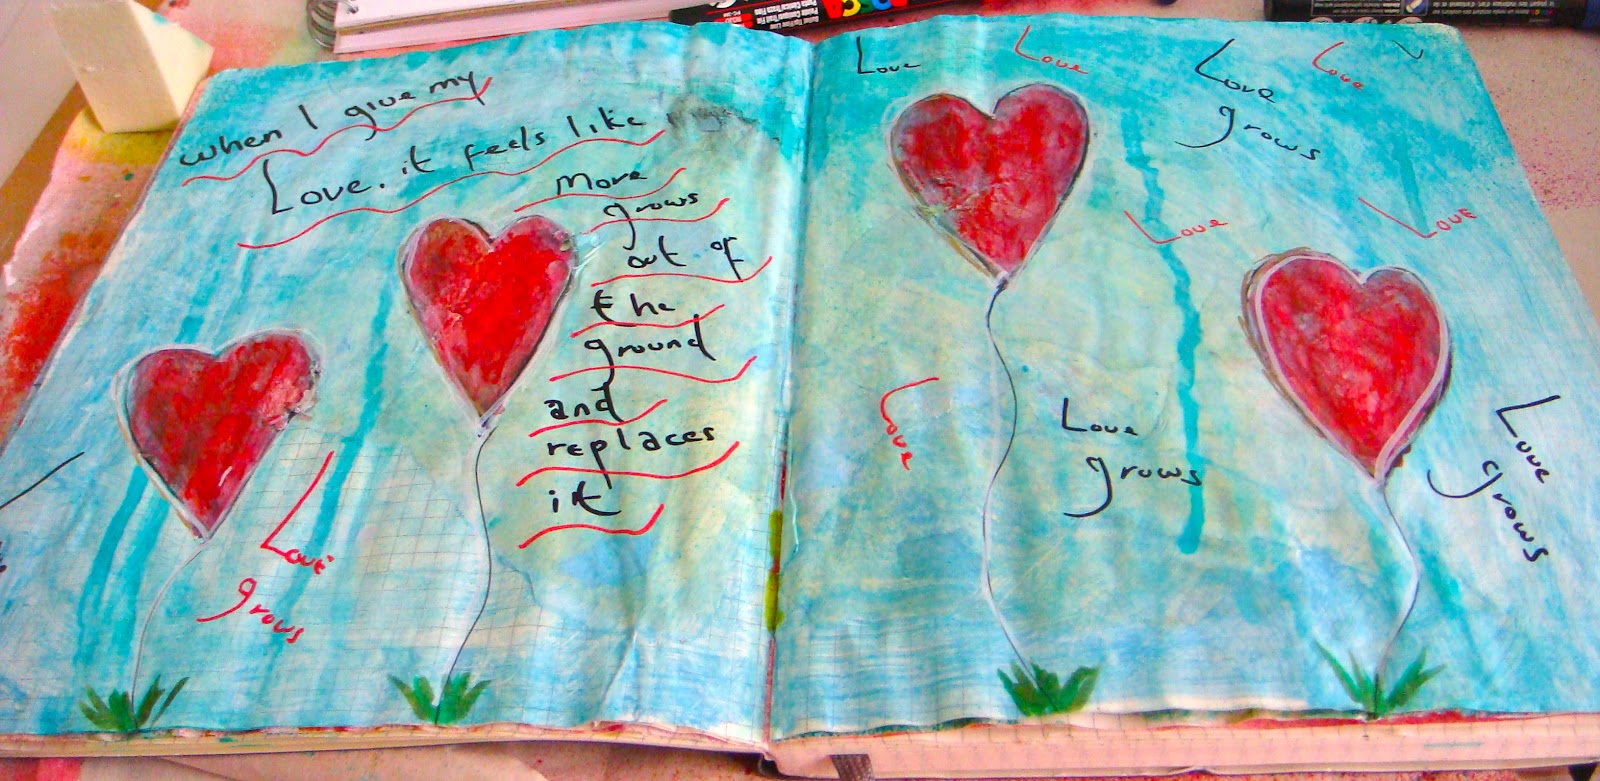 when I give my
Love. it feels like
more
grows
out of
the
ground
and
replaces
it
Love
grows
Love
Love
Love
grows
Love
Love
Love
Love
Love
grows
Love
grows